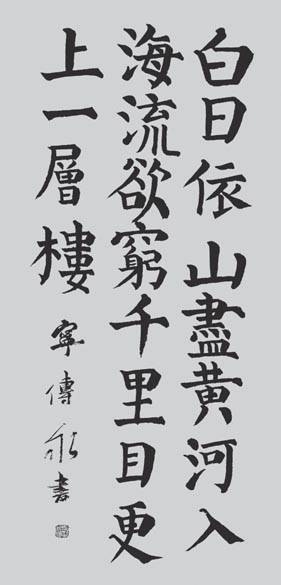 白日依山盡黄河入
海流欲窮千里目更
上一層樓
寧傳永書